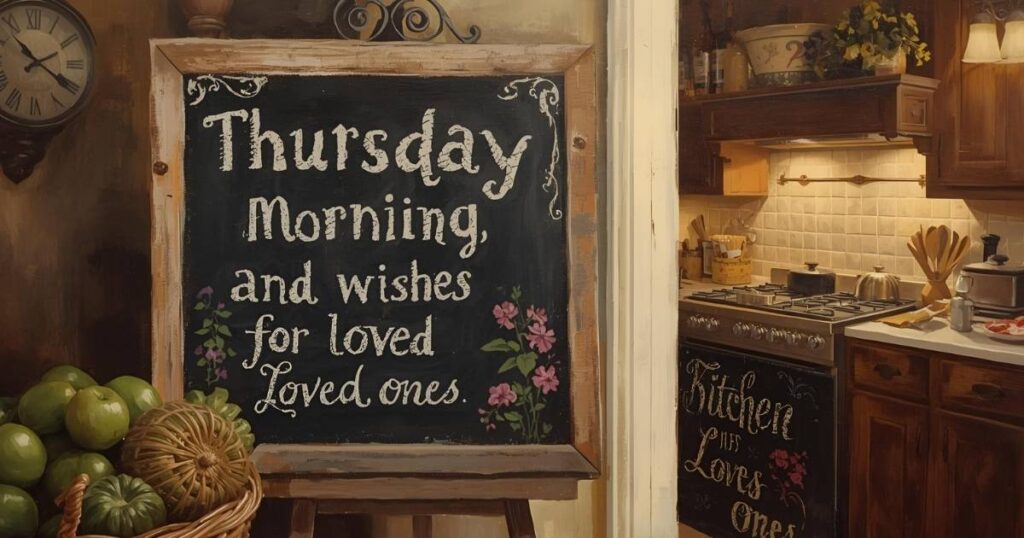 Thursday
Morniing,
and wishes
for loved
Loved ones.
Kitchen
Loves
Ones